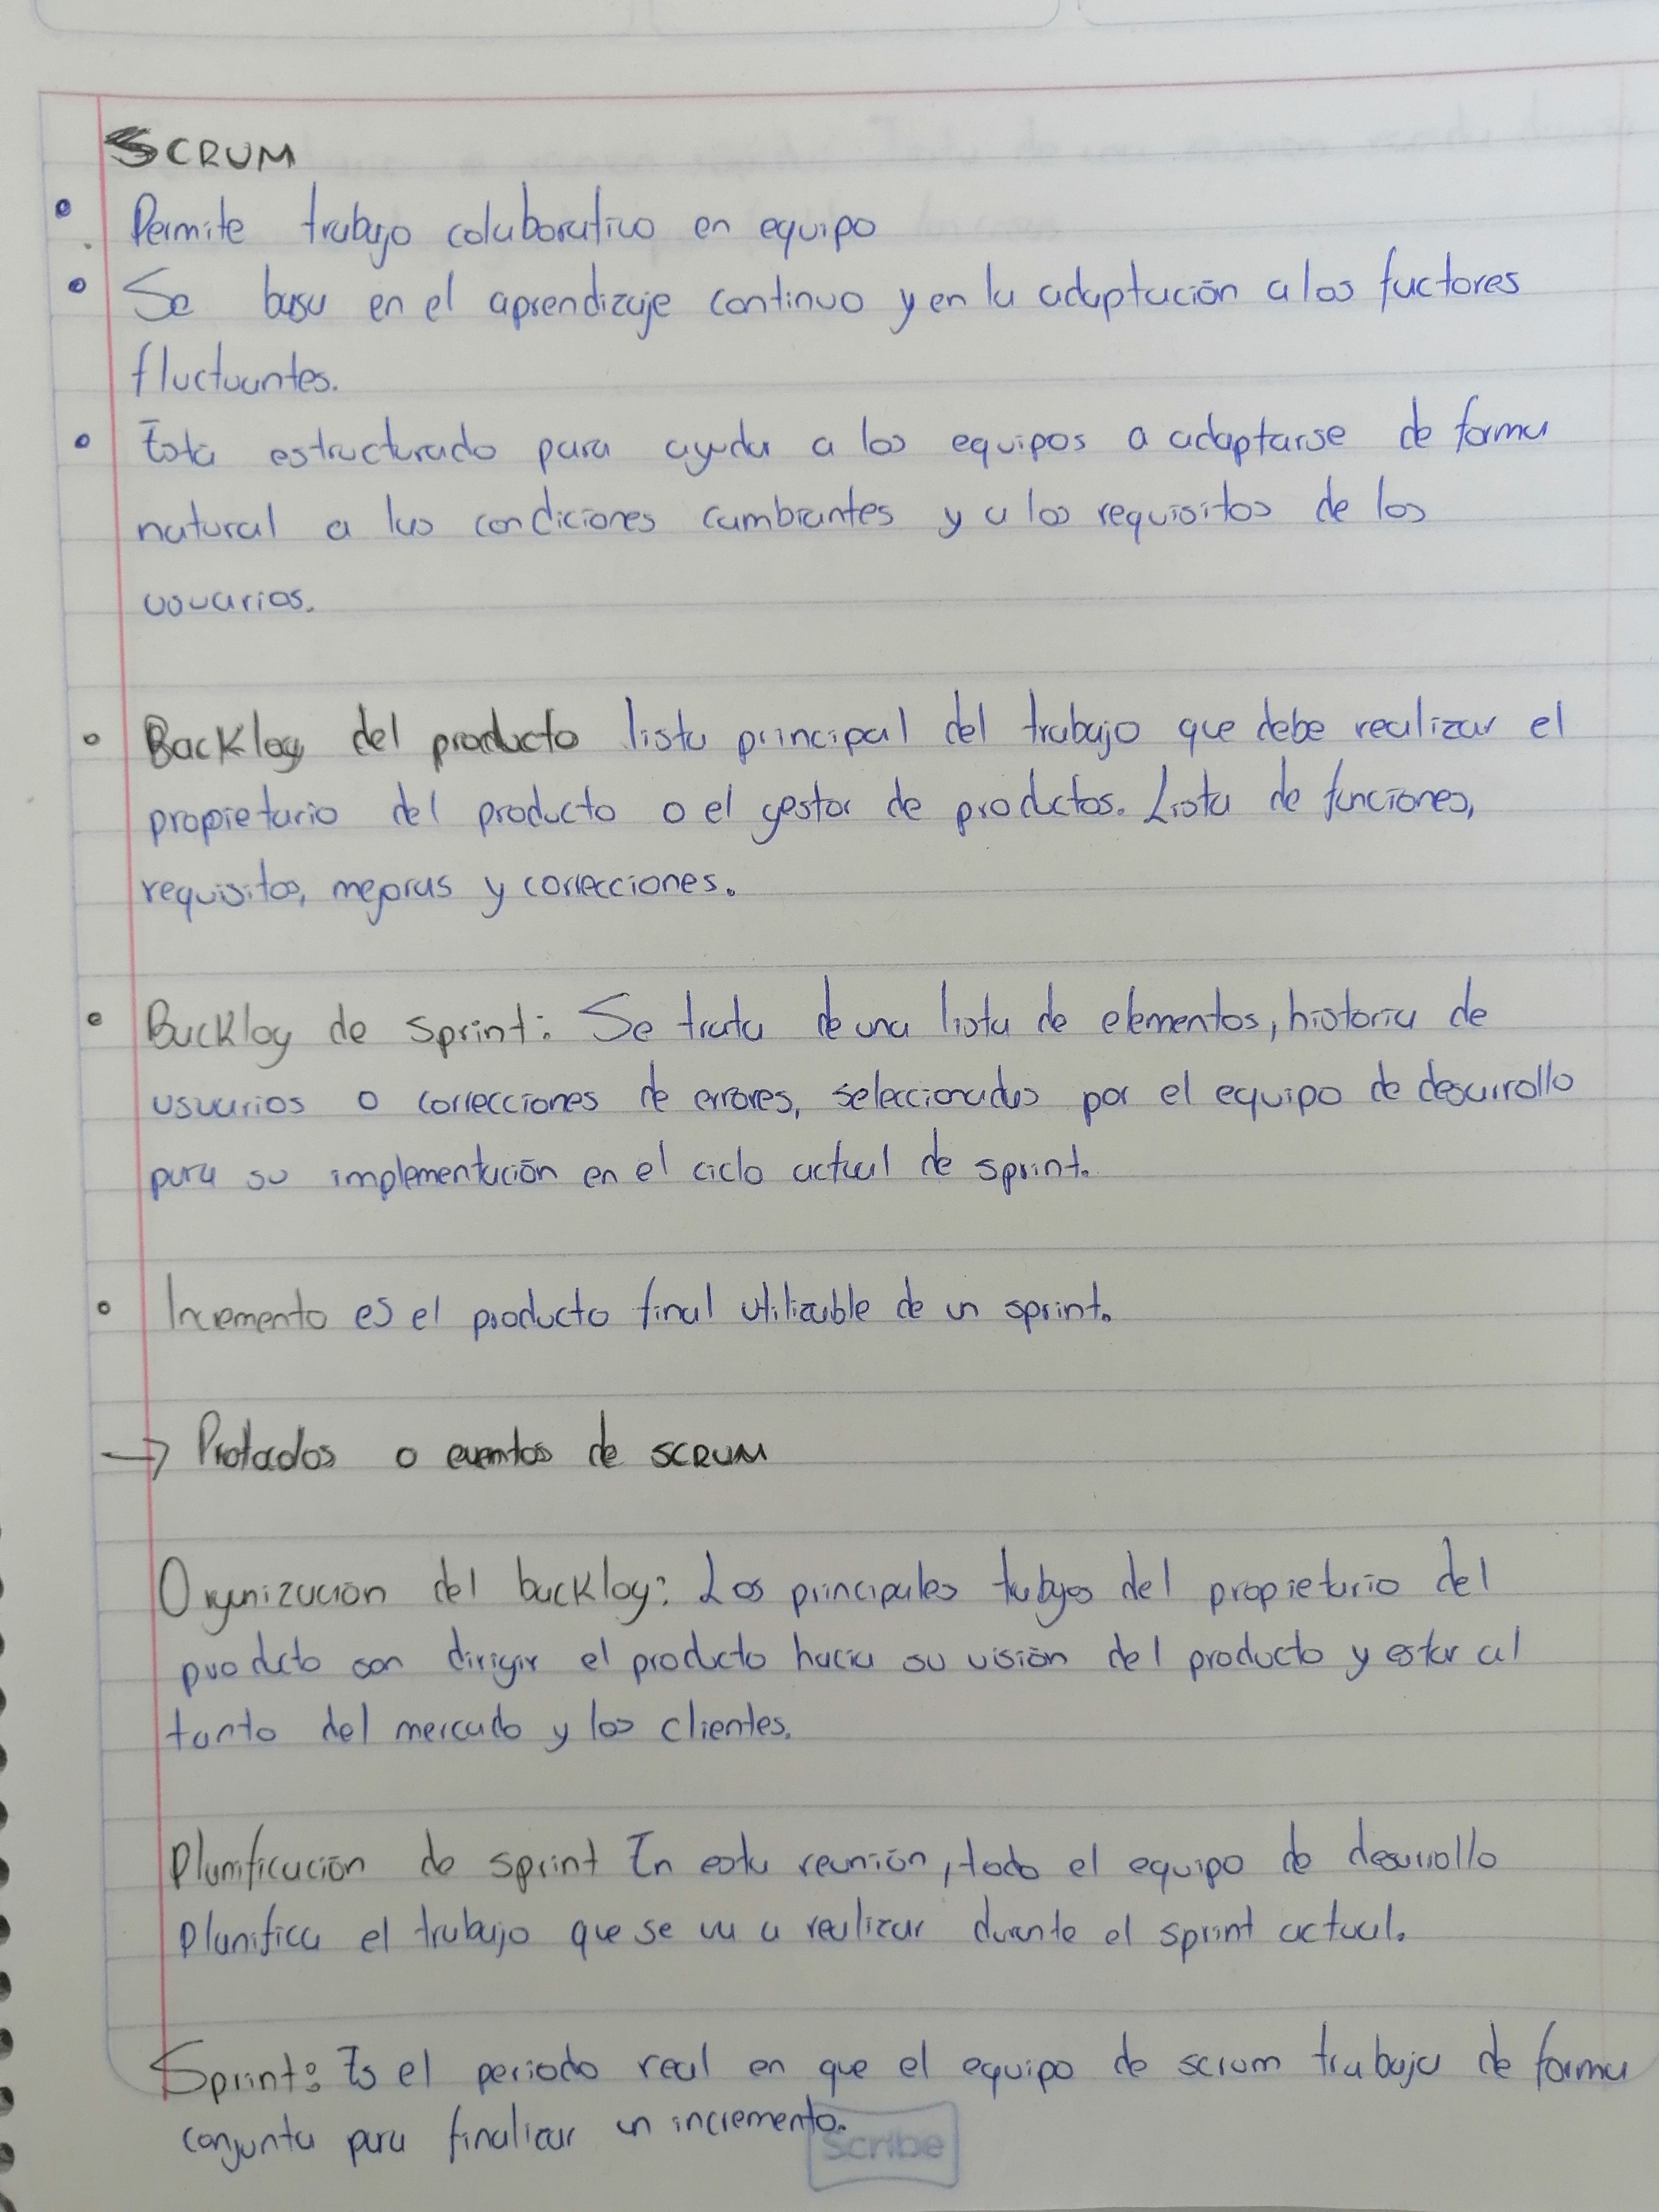 SCRUM
• Permite trabajo colaborativo en equipo
• Se basa en el aprendizaje continuo y en la adaptación a los factores
fluctuantes.
• Esta estructurado para ayuda a los equipos a adaptarse de forma
natural a las condiciones cambiantes y a los requisitos de los
usuarios.
• Backlog del producto lista principal del trabajo que debe realizar el
propietario del producto o el gestor de productos. Lista de funciones,
requisitos, mejoras y correcciones.
• Backlog de sprint: Se trata de una lista de elementos, historia de
usuarios o correcciones de errores, seleccionados por el equipo de desarrollo
para su implementación en el ciclo actual de sprint.
• Incremento es el producto final utilizable de un sprint.
→ o eventos de SCRUM
Organización del backlog: Los principales trabajos del propietario del
producto son dirigir el producto hacia su visión del producto y estar al
tanto del mercado y los clientes.
Planificación de sprint En esta reunión, todo el equipo de desarrollo
planifica el trabajo que se va a realizar durante el sprint actual.
Sprint: Es el periodo real en que el equipo de scrum trabaja de forma
conjunta para finalizar un incremento.
Scribe